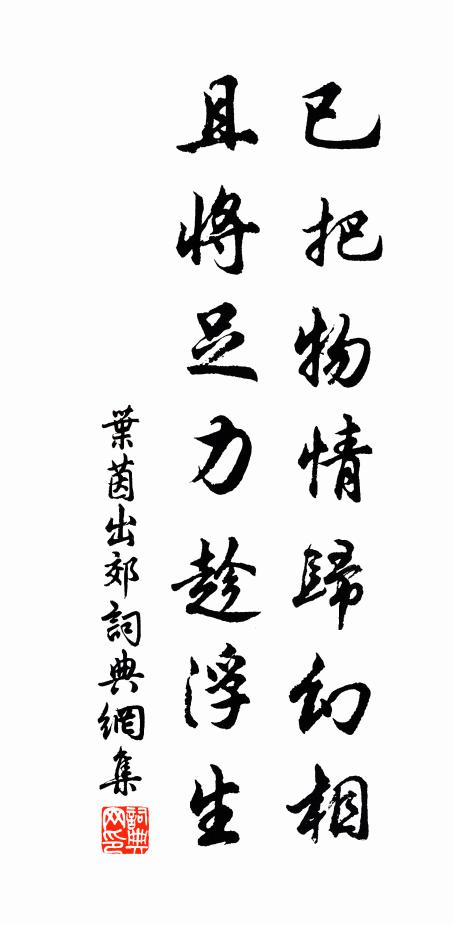 已把物情歸幻相
且將足力趁浮生
葉茵出郊詞典網集
詞典网印